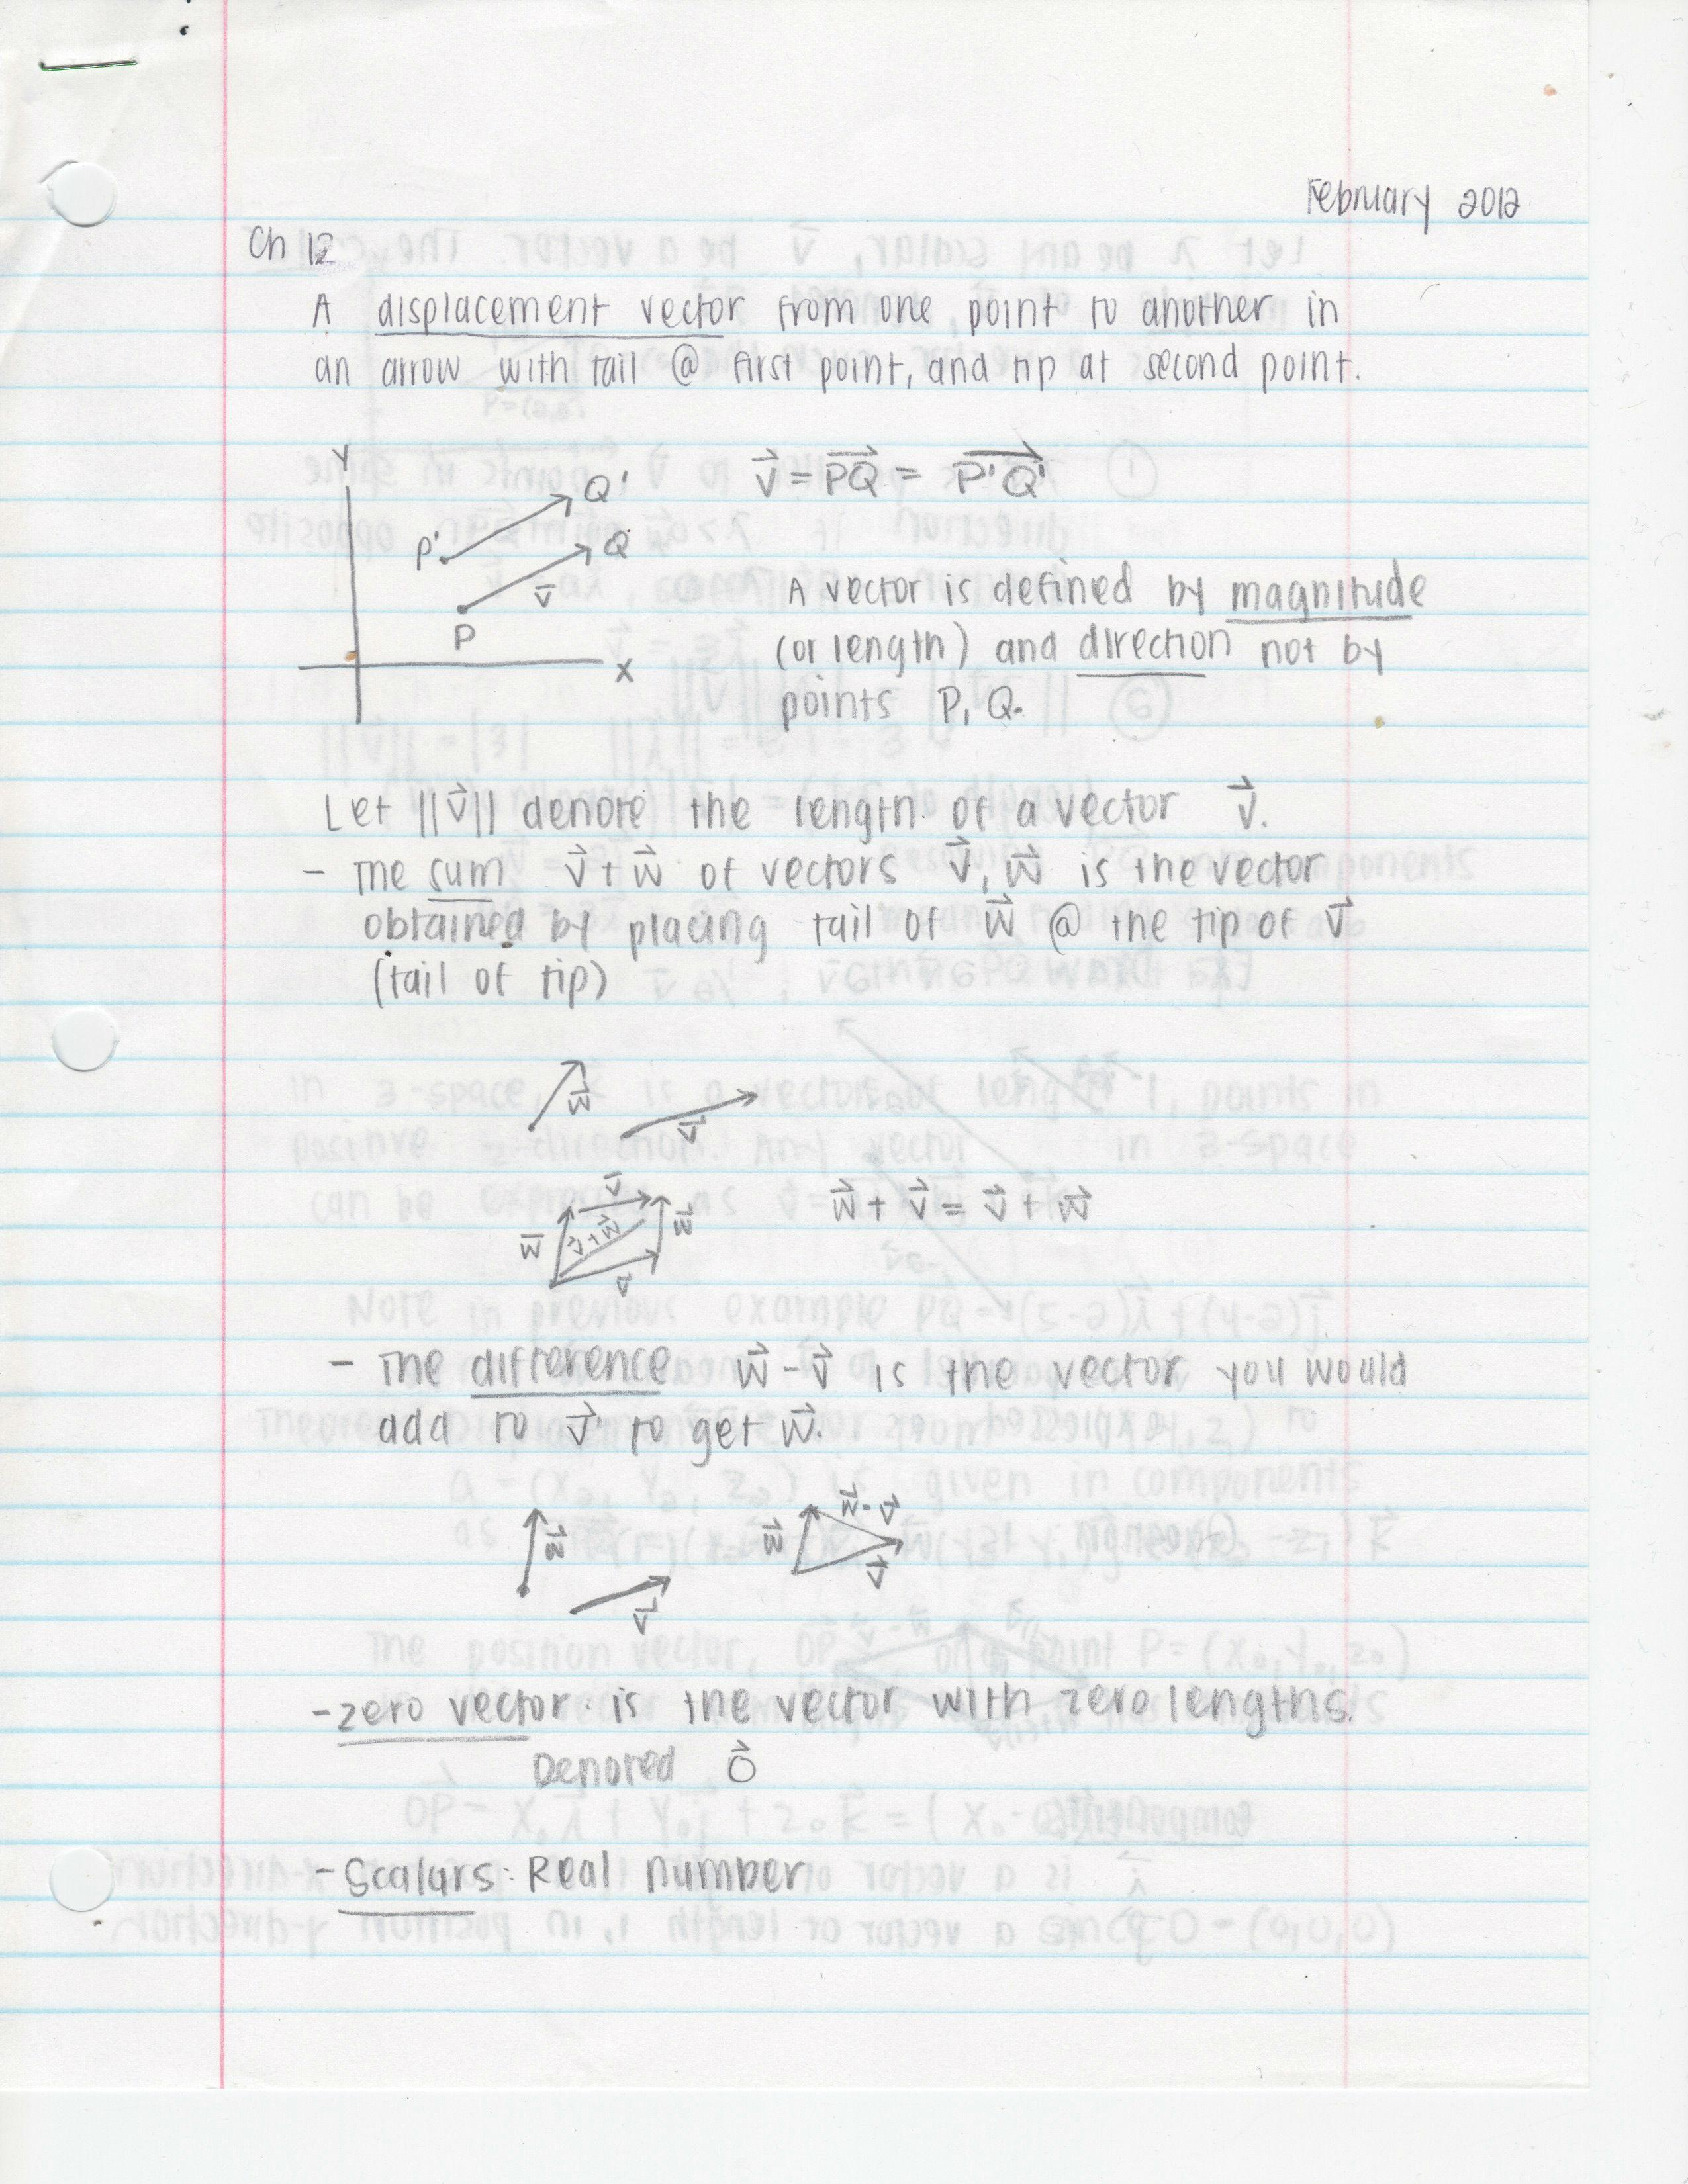 February 2012
Ch 12
A displacement vector from one point to another in
an arrow with tail @ first point, and tip at second point.
Y
Q'
P'
Q
v⃗
P
X
v⃗ = PQ⃗ = P'Q'⃗
A vector is defined by magnitude
(or length) and direction not by
points P, Q.
Let ||v⃗|| denote the length of a vector v⃗.
- The sum v⃗ + w⃗ of vectors v⃗, w⃗ is the vector
obtained by placing tail of w⃗ @ the tip of v⃗
(tail of tip)
w⃗
v⃗
v⃗
w⃗
v⃗ + w⃗
w⃗
v⃗
w⃗ + v⃗ = v⃗ + w⃗
- The difference w⃗ - v⃗ is the vector you would
add to v⃗ to get w⃗.
w⃗
v⃗
w⃗ - v⃗
w⃗
v⃗
- zero vector: is the vector with zero lengths.
Denoted 0⃗
- Scalars: Real number